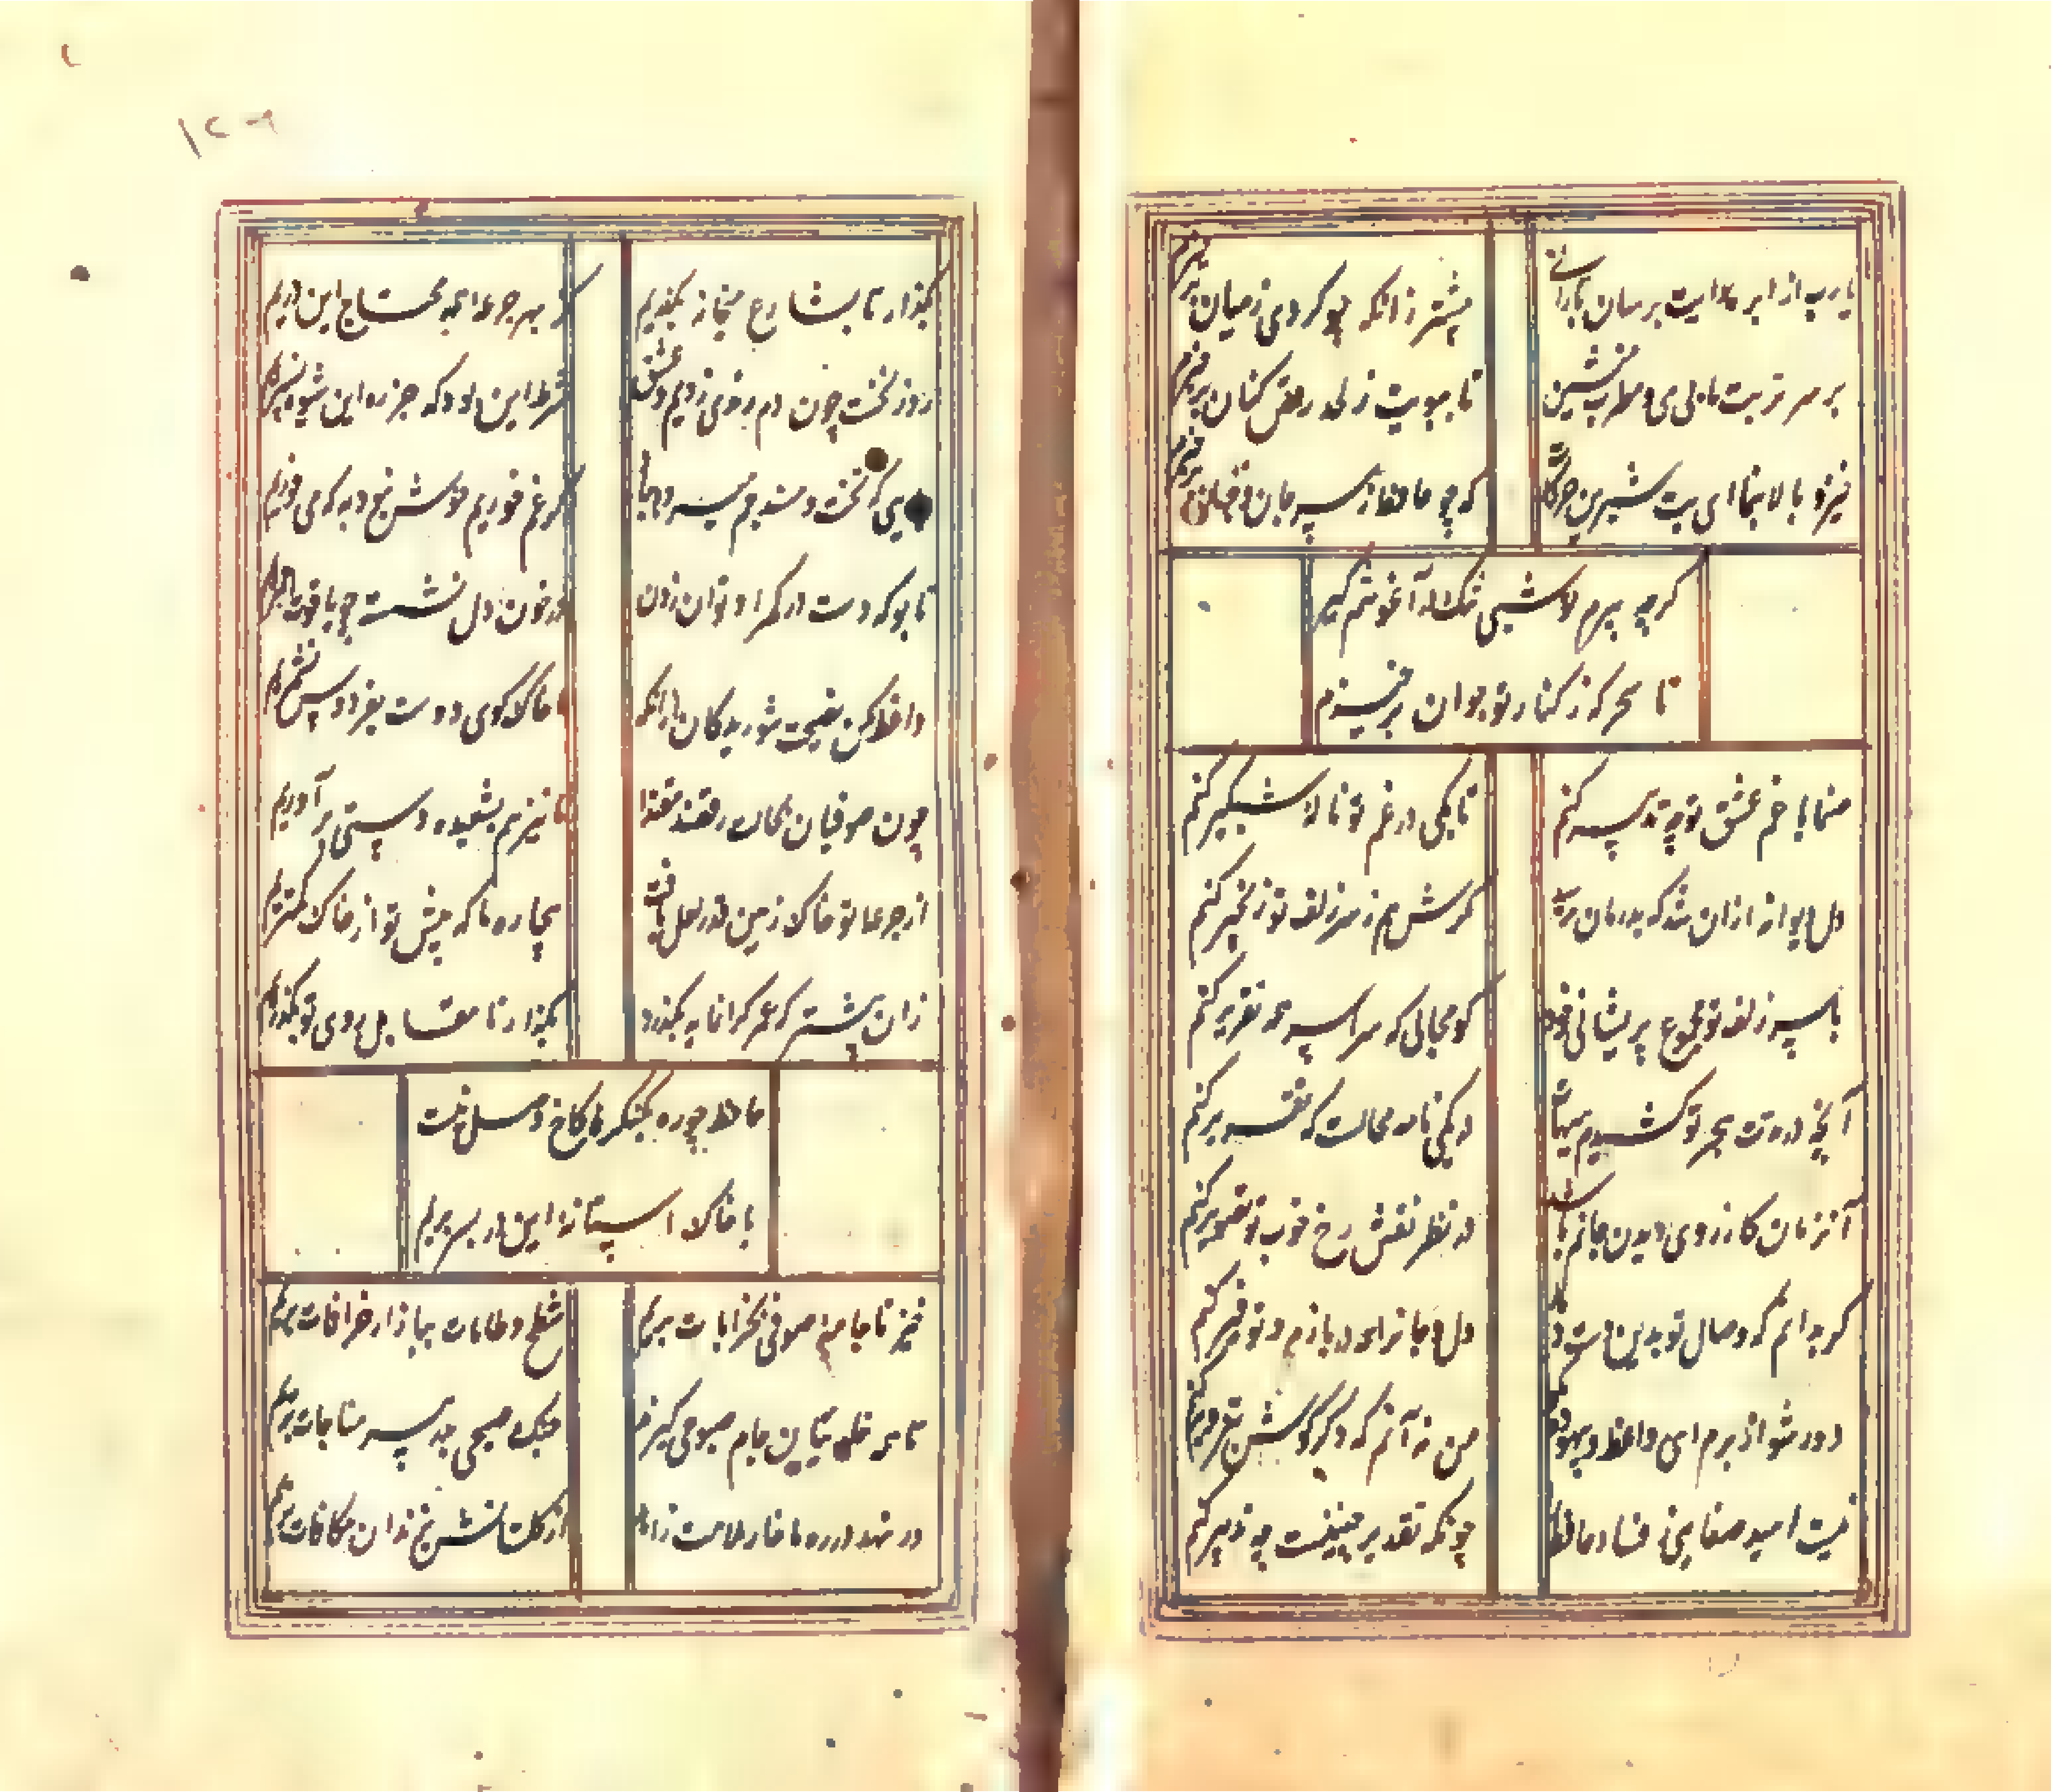 یا رب از ابر هدایت برسان بارانی
پیشتر زانکه چو کردی ز میان برخیزم
بر سر تربت ما بی می و مطرب منشین
تا ببویت ز لحد رقص کنان برخیزم
خیز و بالا بنما ای بت شیرین حرکات
که چو حافظ ز سر جان و جهان برخیزم
کرچه پیرم تو شبی تنک در آغوشم کیر
تا سحرکه ز کنار تو جوان برخیزم
صنما با غم عشق تو چه تدبیر کنم
تا بکی در غم تو ناله شبکیر کنم
دل دیوانه ازان شد که بدرمان
مکرش هم ز سر زلف تو زنجیر کنم
با سر زلف تو مجموع پریشانی خود
کو مجالی که سراسر همه تقریر کنم
آنچه در مدت هجر تو کشیدم هیهات
در یکی نامه محالست که تحریر کنم
آنزمان کارزوی دیدن جانم باشد
در نظر نقش رخ خوب تو تصویر کنم
کر بدانم که وصال تو بدین دست دهد
دل و جانرا همه دربازم و توفیر کنم
دور شو از برم ای واعظ و بیهوده مکوی
من نه آنم که دکر کوش بتزویر کنم
نیست امید صلاحی ز فساد حافظ
چونکه تقدیر چنینست چه تدبیر کنم
۱۲۹
بکذار تا بشارع میخانه بکذریم
کز بهر جرعه همه محتاج این دریم
روز نخست چون دم رندی زدیم و عشق
شرط این بود که جز ره این شیوه نسپریم
جایی که تخت و مسند جم میرود بباد
کر غم خوریم خوش نبود به که می خوریم
تا بو که دست در کمر او توان زدن
در خون دل نشسته چو یاقوت احمریم
واعظ مکن نصیحت شوریدکان که ما
با خاک کوی دوست بفردوس ننکریم
چون صوفیان بحالت رقصند مقتدا
ما نیز هم بشعبده دستی برآوریم
از جرعه تو خاک زمین در و لعل یافت
بیچاره ما که پیش تو از خاک کمتریم
زان پیشتر که عمر کرانمایه بکذرد
بکذار تا مقابل روی تو بکذریم
حافظ چو ره بکنکره کاخ وصل نیست
با خاک آستانه این در بسر بریم
خیز تا جامه صوفی بخرابات بریم
شطح و طامات ببازار خرافات بریم
تا همه خلوتیان جام صبوحی کیرند
چنک صبحی بدر پیر مناجات بریم
در نهد در ره ما خار ملامت زاهد
از کلستانش بزندان مکافات بریم